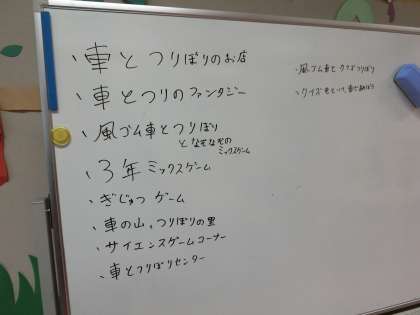 ・車とつりぼりのお店
・車とつりのファンタジー
・風ゴム車とつりぼり
となぞなぞの
ミックスゲーム
・3年ミックスゲーム
・ぎじゅつゲーム
・車の山、つりぼりの里
・サイエンスゲームコーナー
・車とつりぼりセンター
・風ゴム車とクイズつりぼり
・クイズをといて、車で